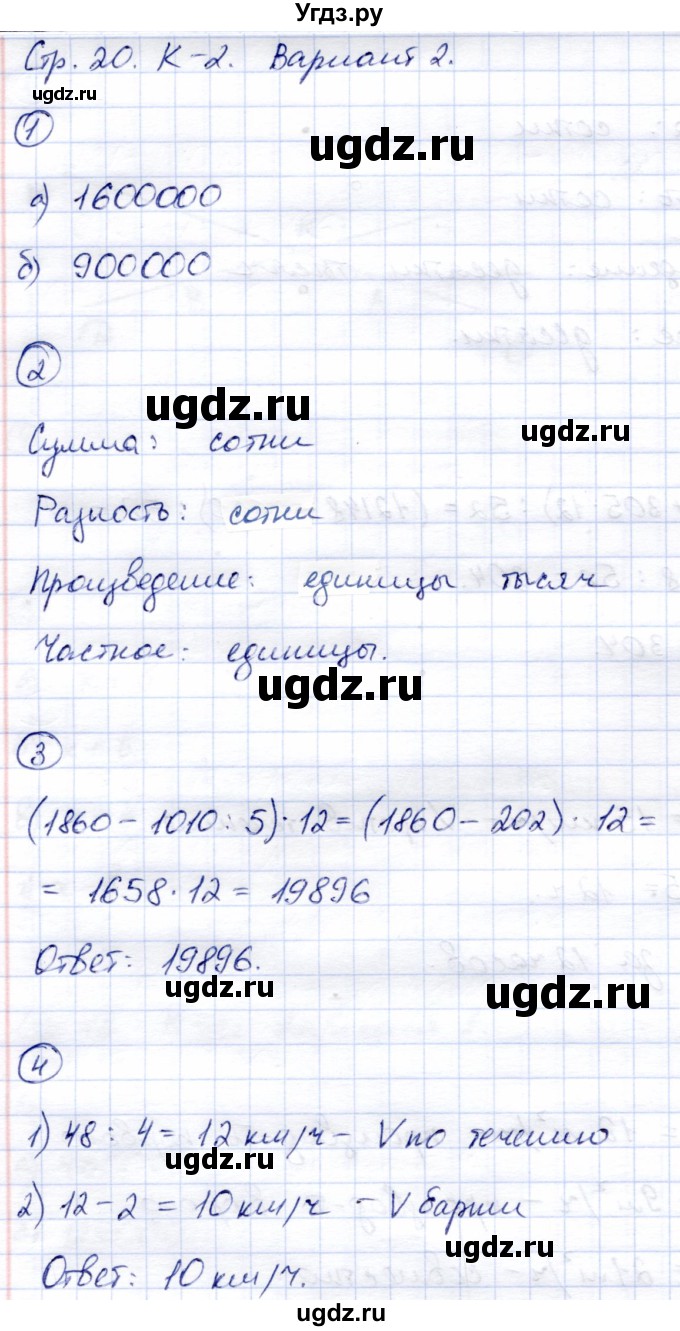 Угдз.ру
Стр. 20. К-2. Вариант 2.
ugdz.ru
1
ugdz.ru
а) 1600000
б) 900000
2
ugdz.ru
ugdz.ru
Сумма: сотни
Разность: сотни
Произведение: единицы тысяч
Частное: единицы.
ugdz.ru
3
(1860 - 1010 : 5) · 12 = (1860 - 202) · 12 =
= 1658 · 12 = 19896
Ответ: 19896.
ugdz.ru
ugdz.ru
4
1) 48 : 4 = 12 км/ч - V по течению
ugdz.ru
2) 12 - 2 = 10 км/ч - V баржи
ugdz.ru
Ответ: 10 км/ч.
ugdz.ru